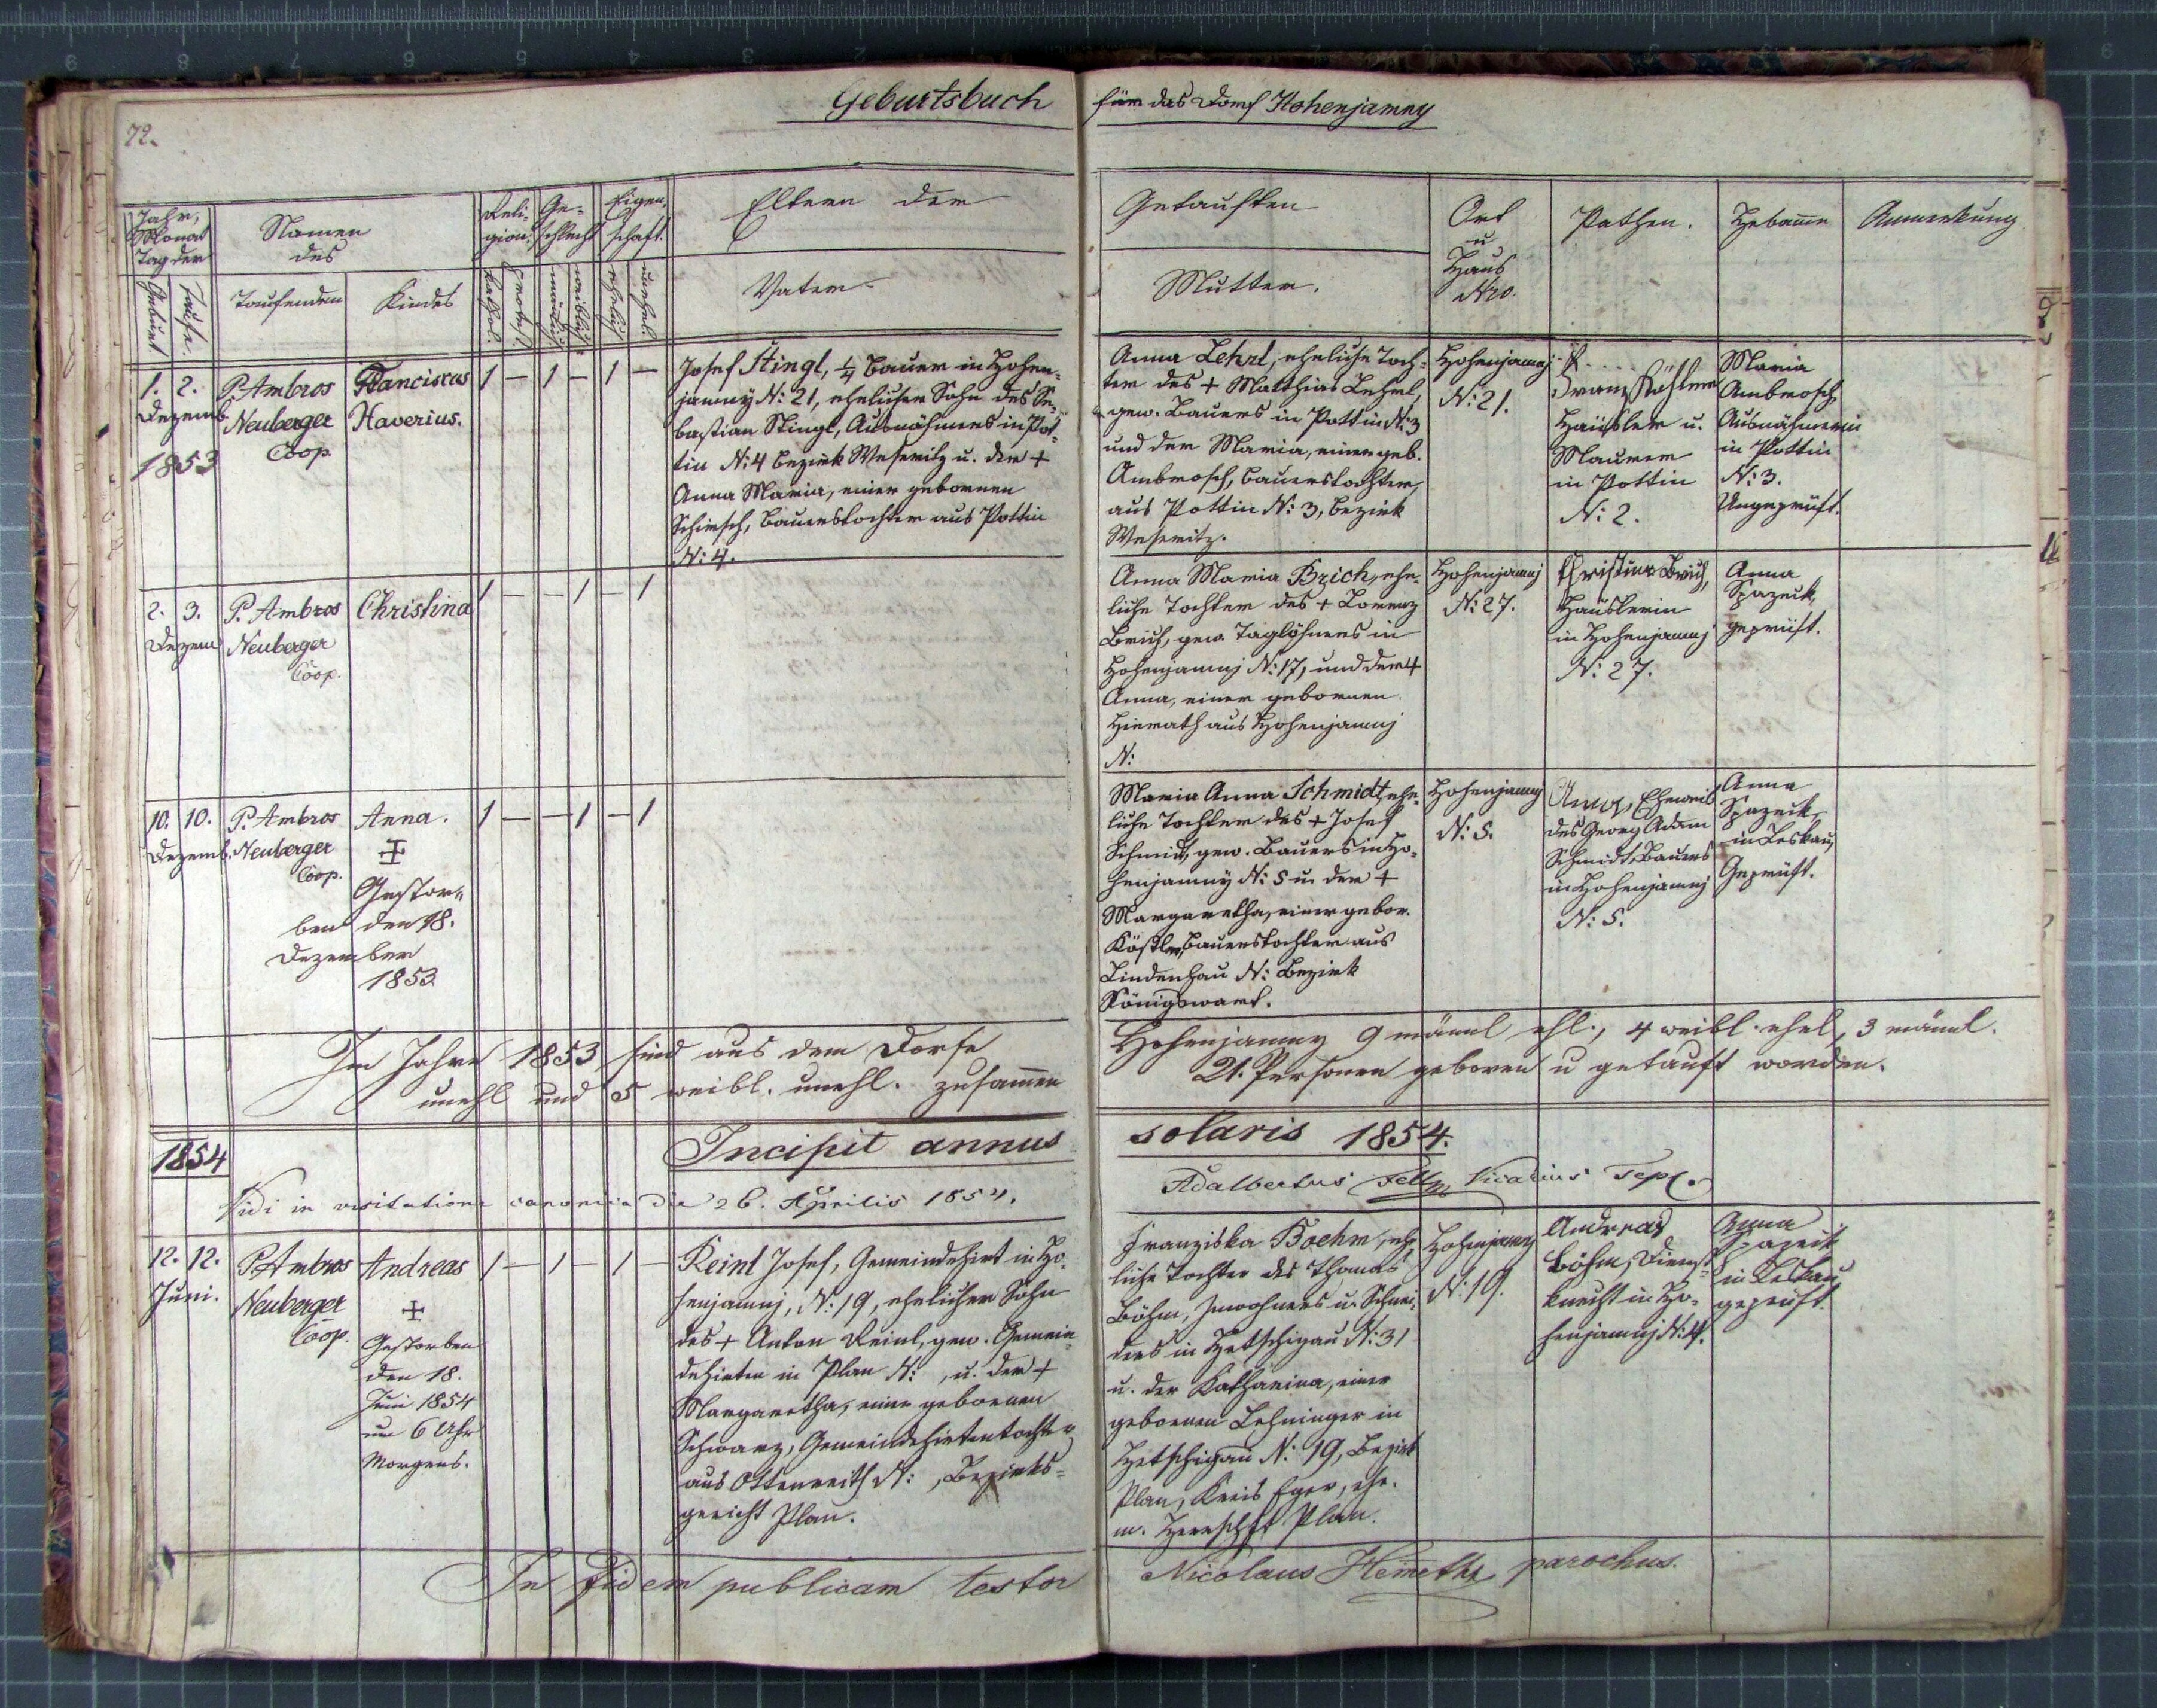 Geburtsbuch für das Dorf Hohenjamny
72.
Jahr,
Monat
Tag der
Geburt.
Taufe.
Namen
des
Taufenden
Kindes
Reli-
gion.
kathol.
protest.
Ge-
schlecht
männlich
weiblich
Eigen-
schaft.
ehelich
unehel.
Eltern der
Vater
Getauften
Mutter.
Ort
u
Haus
Nro.
Pathen.
Hebamme
Anmerkung
1. 2.
Dezemb.
1853
P. Ambros
Neuberger
Coop.
Franciscus
Xaverius.
1 — 1 — 1 —
Josef Stingl, 1/4 Bauer in Hohen-
jamny N: 21, ehelicher Sohn des Se-
bastian Stingl, Ausnähmers in Pot-
tin N: 4 Bezirk Weseritz u. der +
Anna Maria, einer gebornen
Schirsch, Bauerstochter aus Pottin
N: 4.
Anna Lehrl, eheliche Toch-
ter des + Matthias Lehrl,
gew. Bauers in Pottin N: 3
und der Maria, einer geb.
Ambrosch, Bauerstochter,
aus Pottin N: 3, Bezirk
Weseritz.
Hohenjamnj
N: 21.
Franz
Häusler u.
Maurer
in Pottin
N: 2.
Maria
Ambrosch
Ausnähmerin
in Pottin
N: 3.
Ungeprüft.
2. 3.
Dezem
P. Ambros
Neuberger
Coop.
Christina
1 — — 1 — 1
Anna Maria Brich, ehe-
liche Tochter des + Lorenz
Brich, gew. Taglöhners in
Hohenjamnj N: 17, und der +
Anna, einer gebornen
Hierath aus Hohenjamnj
N:
Hohenjamnj
N: 27.
Christina Brich,
Häuslerin
in Hohenjamnj
N: 27.
Anna
Spazeck,
geprüft.
10. 10.
Dezemb.
P. Ambros
Neuberger
Coop.
Anna.
Gestor-
ben den 18.
Dezember
1853
1 — — 1 — 1
Maria Anna Schmidt, ehe-
liche Tochter des + Josef
Schmidt, gew. Bauers in Ho-
henjamny N: 5 u. der +
Margaretha, einer gebor.
Köstler, Bauerstochter aus
Lindenhau N: Bezirk
Königswart.
Hohenjamny
N: 5.
Anna, Eheweib
des Georg Adam
Schmidt, Bauers
in Hohenjamnj
N: 5.
Anna
Spazeck,
in Leskau,
Geprüft.
Im Jahre 1853 sind aus dem Dorfe Hohenjamny 9 männl ehl., 4 weibl. ehel, 3 männl.
unehl und 5 weibl. unehl. zusammen 21. Personen geboren u getauft worden.
1854
Incipit annus solaris 1854.
Vidi in visitatione canonica die 26. Aprilis 1854. Adalbertus Vicarius Tepl.
12. 12.
Juni.
P. Ambros
Neuberger
Coop.
Andreas
Gestorben
den 18.
Juni 1854
um 6 Uhr
Morgens.
1 — 1 — 1 —
Reinl Josef, Gemeindehirt in Ho-
henjamnj, N: 19, ehelicher Sohn
des + Anton Reinl, gew. Gemein-
dehirten in Plan N: , u. der +
Margaretha, einer gebornen
Schwarz, Gemeindehirtentochter
aus Ottenreith N: , Bezirks-
gericht Plan.
Franziska Boehm, ehe-
liche Tochter des Thomas
Böhm, Inwohners u. Schnei-
ders in Hetschigau N: 31
u. der Katharina, einer
gebornen Lehninger in
Hetschigau N: 19, Bezirk
Plan, Kreis Eger, ehe-
m. Herrschft Plan.
Hohenjamny
N: 19.
Andreas
Böhm, Dienst-
knecht in Ho-
henjamnj N: 4.
Anna
Spazeck
in Leskau
geprüft.
In fidem publicam testor Nicolaus parochus.